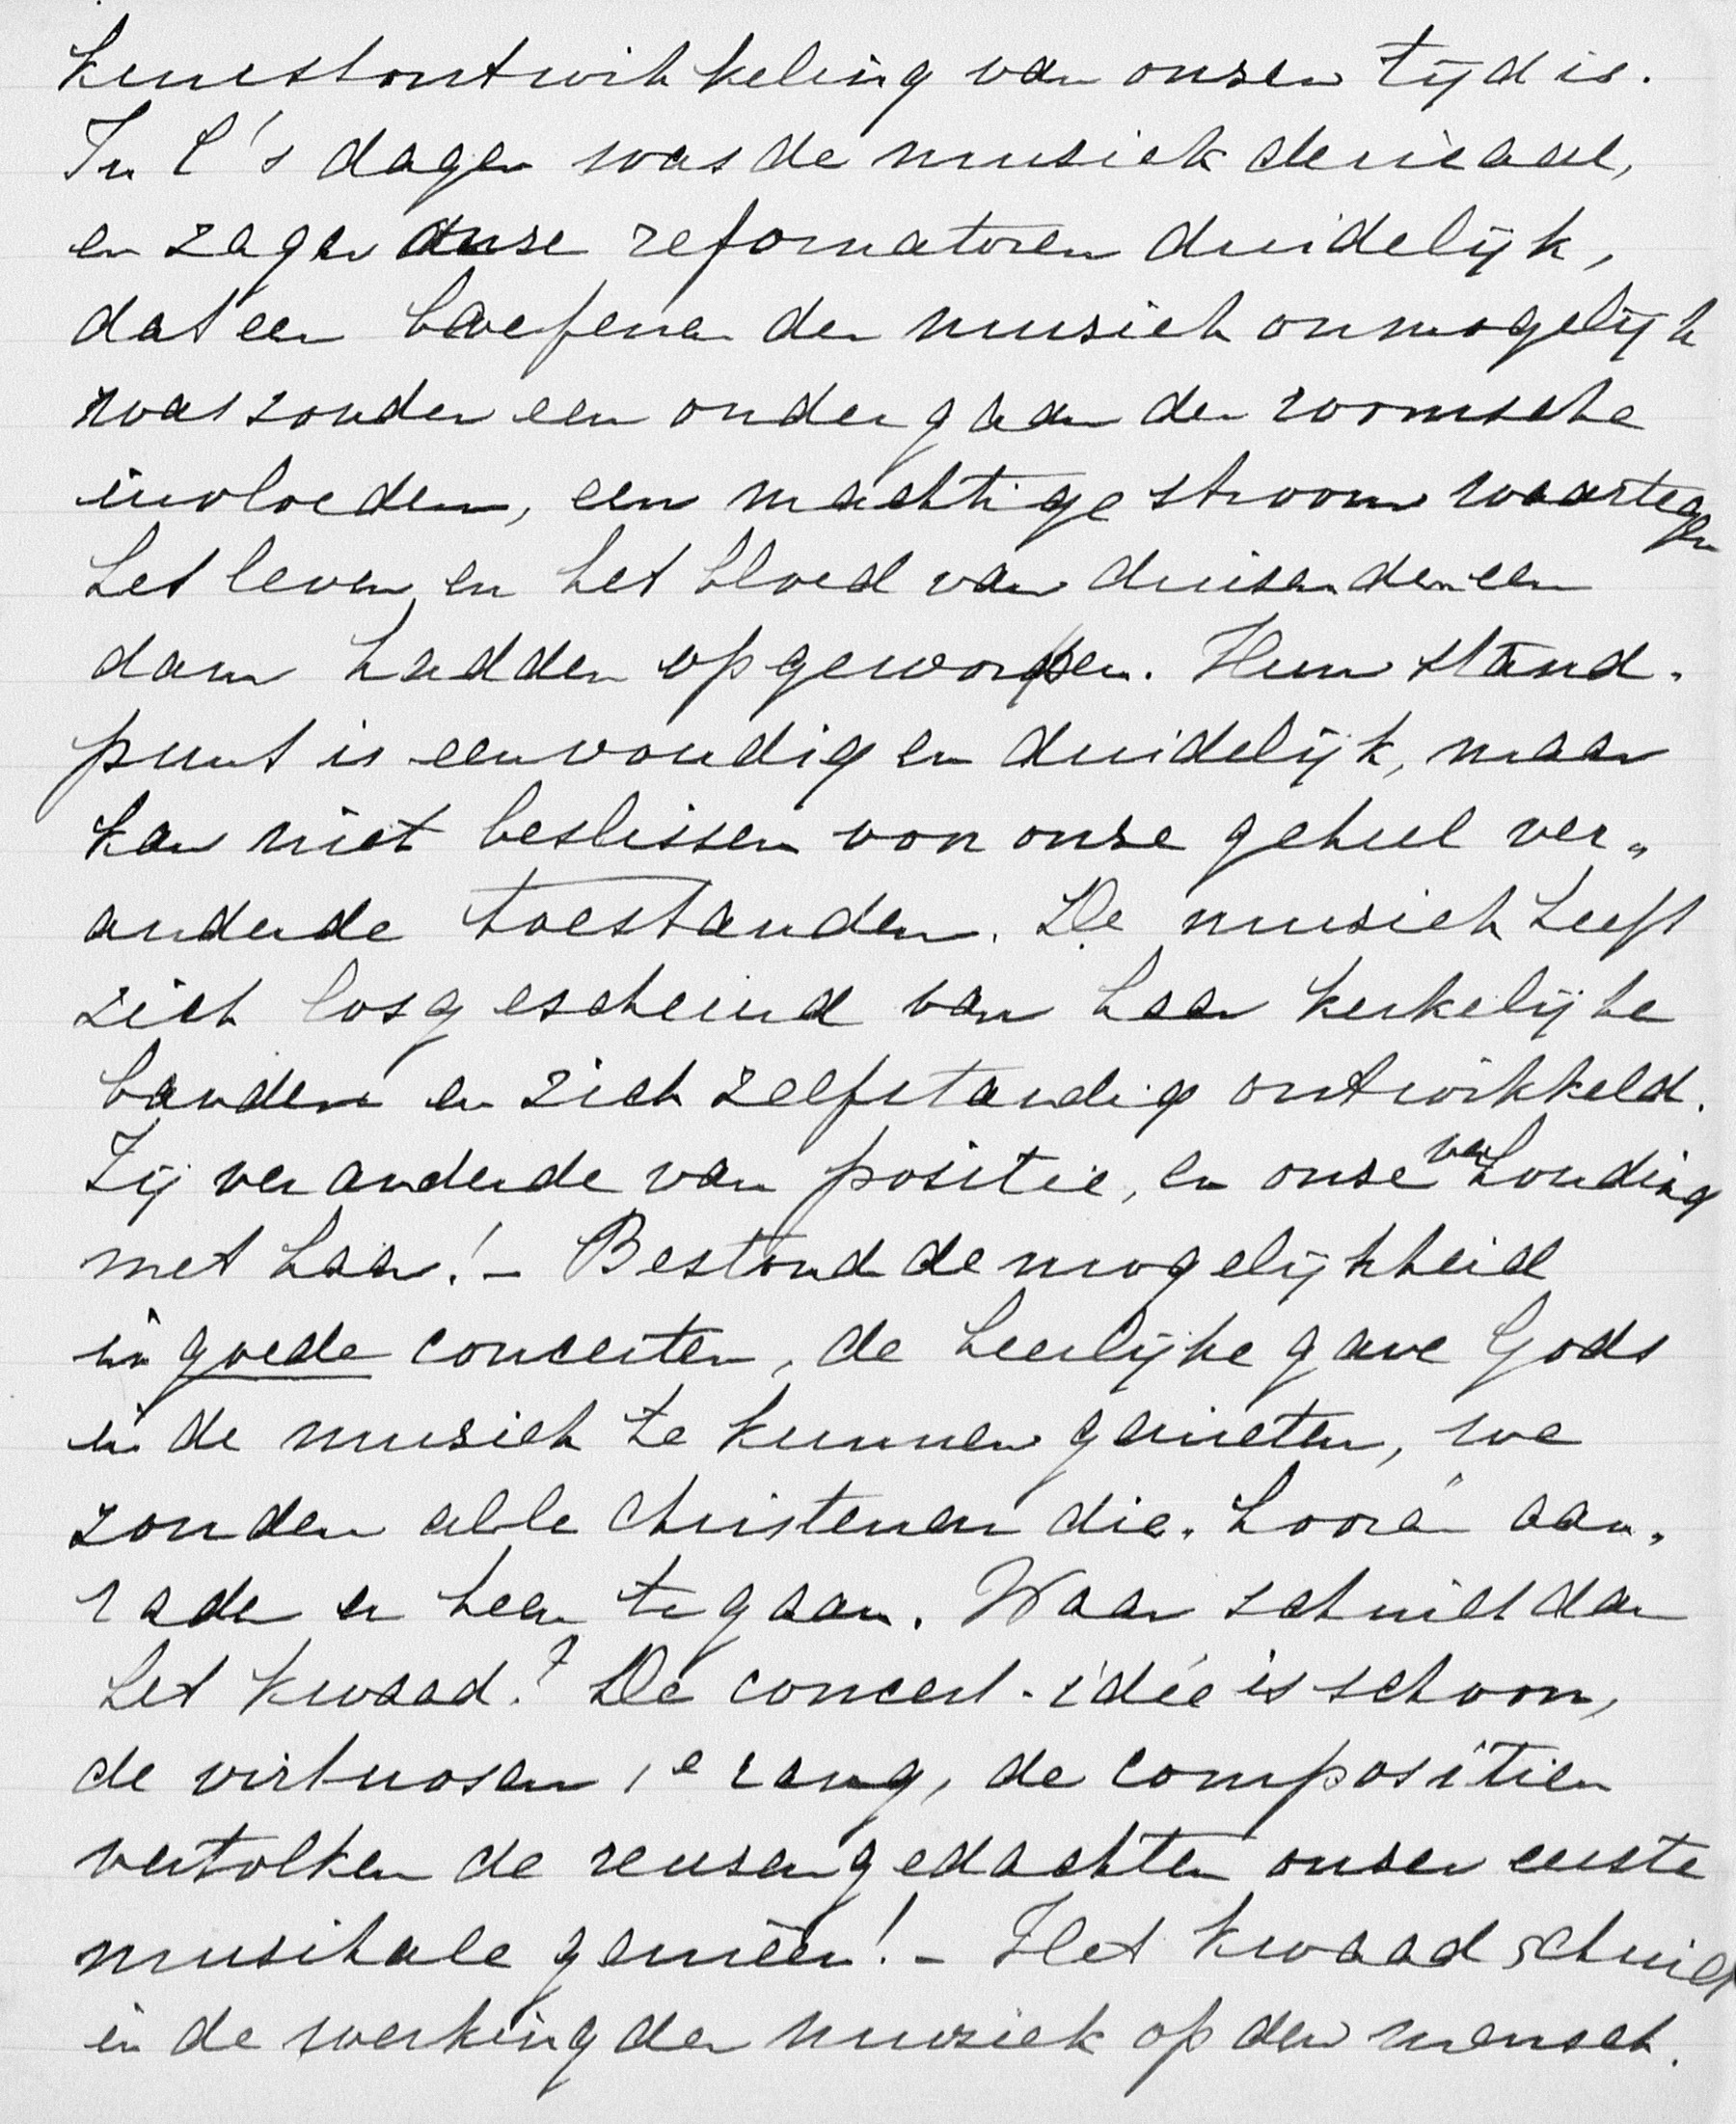 kunstontwikkeling van onzen tijd is.
In C's dagen was de musiek clericaal,
en zagen onze reformatoren duidelijk,
dat een beoefenen der musiek onmogelijk
was zonder een ondergaan der roomsche
invloeden, een machtige stroom waartegen
het leven en het bloed van duizenden een
dam hadden opgeworpen. Hun stand-
punt is eenvoudig en duidelijk, maar
kan niet beslissen voor onze geheel ver-
anderde toestanden. De musiek heeft
zich losgescheurd van haar kerkelijke
banden en zich zelfstandig ontwikkeld.
Zij veranderde van positie, en onze verhouding
met haar! - Bestond de mogelijkheid
in goede concerten, de heerlijke gave Gods
in de musiek te kunnen genieten, we
zouden alle Christenen die. hooren aan-
raden er heen te gaan. Waar schuilt dan
het kwaad? De concert-idée is schoon,
de virtuosen 1e rang, de compositien
vertolken de reusengedachten onzer eerste
musikale genieën! - Het kwaad schuilt
in de werking der muziek op den mensch.